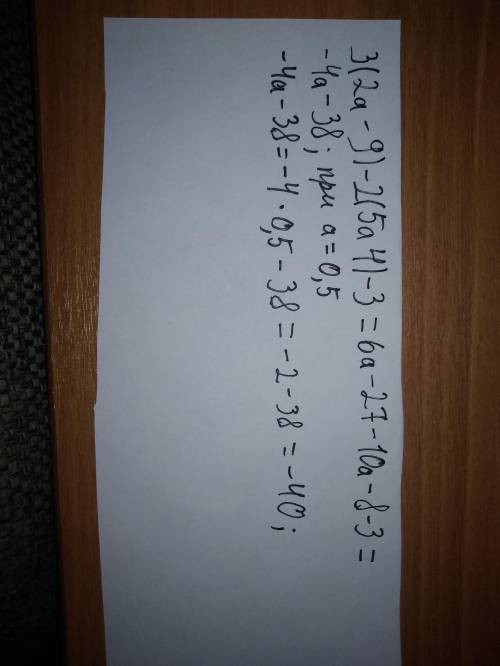 3(2a-9)-2(5a4)-3=6a-27-10a-8-3=
-4a-38; при a=0,5
-4a-38=-4·0,5-38=-2-38=-40;